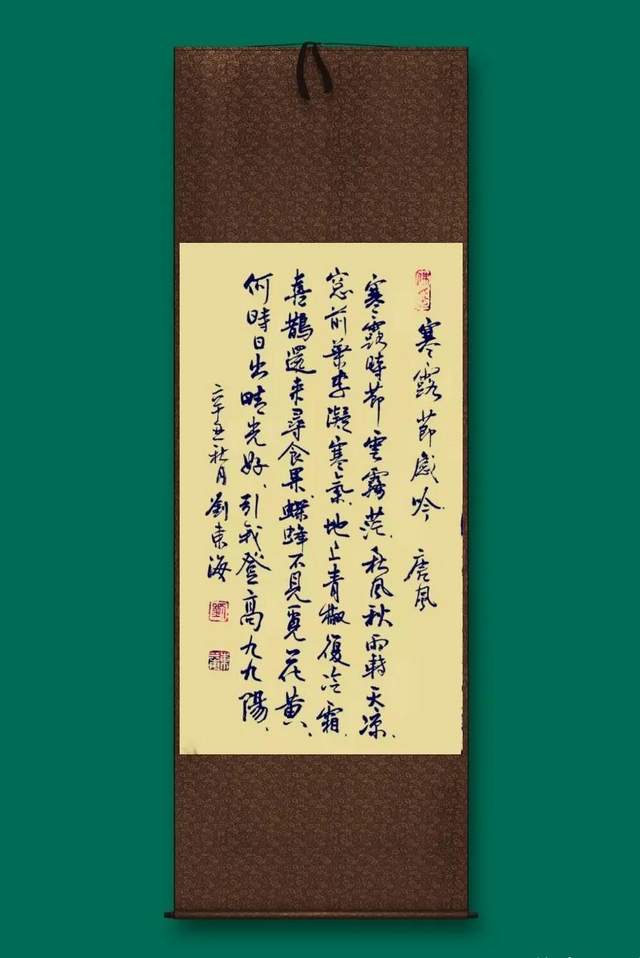 寒露節感吟　唐風
寒露時節雲霧茫、秋風秋雨轉天凉、
窓前葉李凝寒氣、地上青椒復冷霜、
喜鵲還來尋食果、蝶蜂不見覓花黄、
何時日出晴光好、引我登高九九陽、
辛丑秋月劉東海